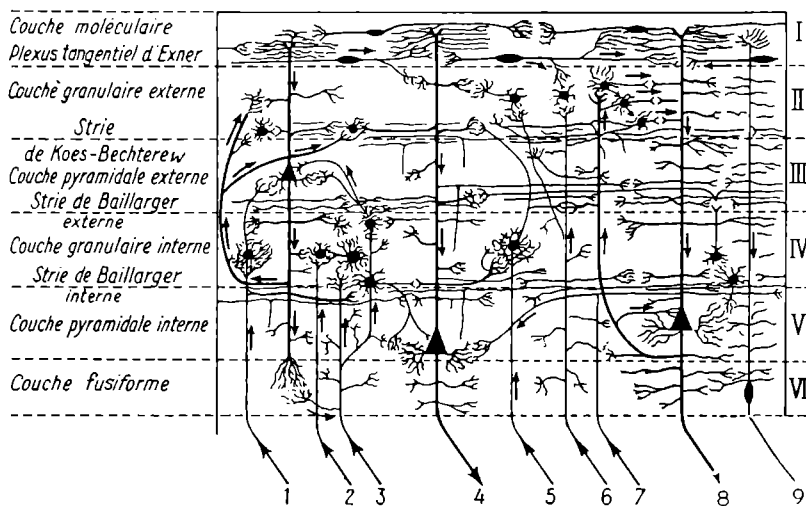 Couche moléculaire
Plexus tangentiel d'Exner
Couche granulaire externe
Strie
de Koes-Bechterew
Couche pyramidale externe
Strie de Baillarger
externe
Couche granulaire interne
Strie de Baillarger
interne
Couche pyramidale interne
Couche fusiforme
I
II
III
IV
V
VI
1 2 3 4 5 6 7 8 9